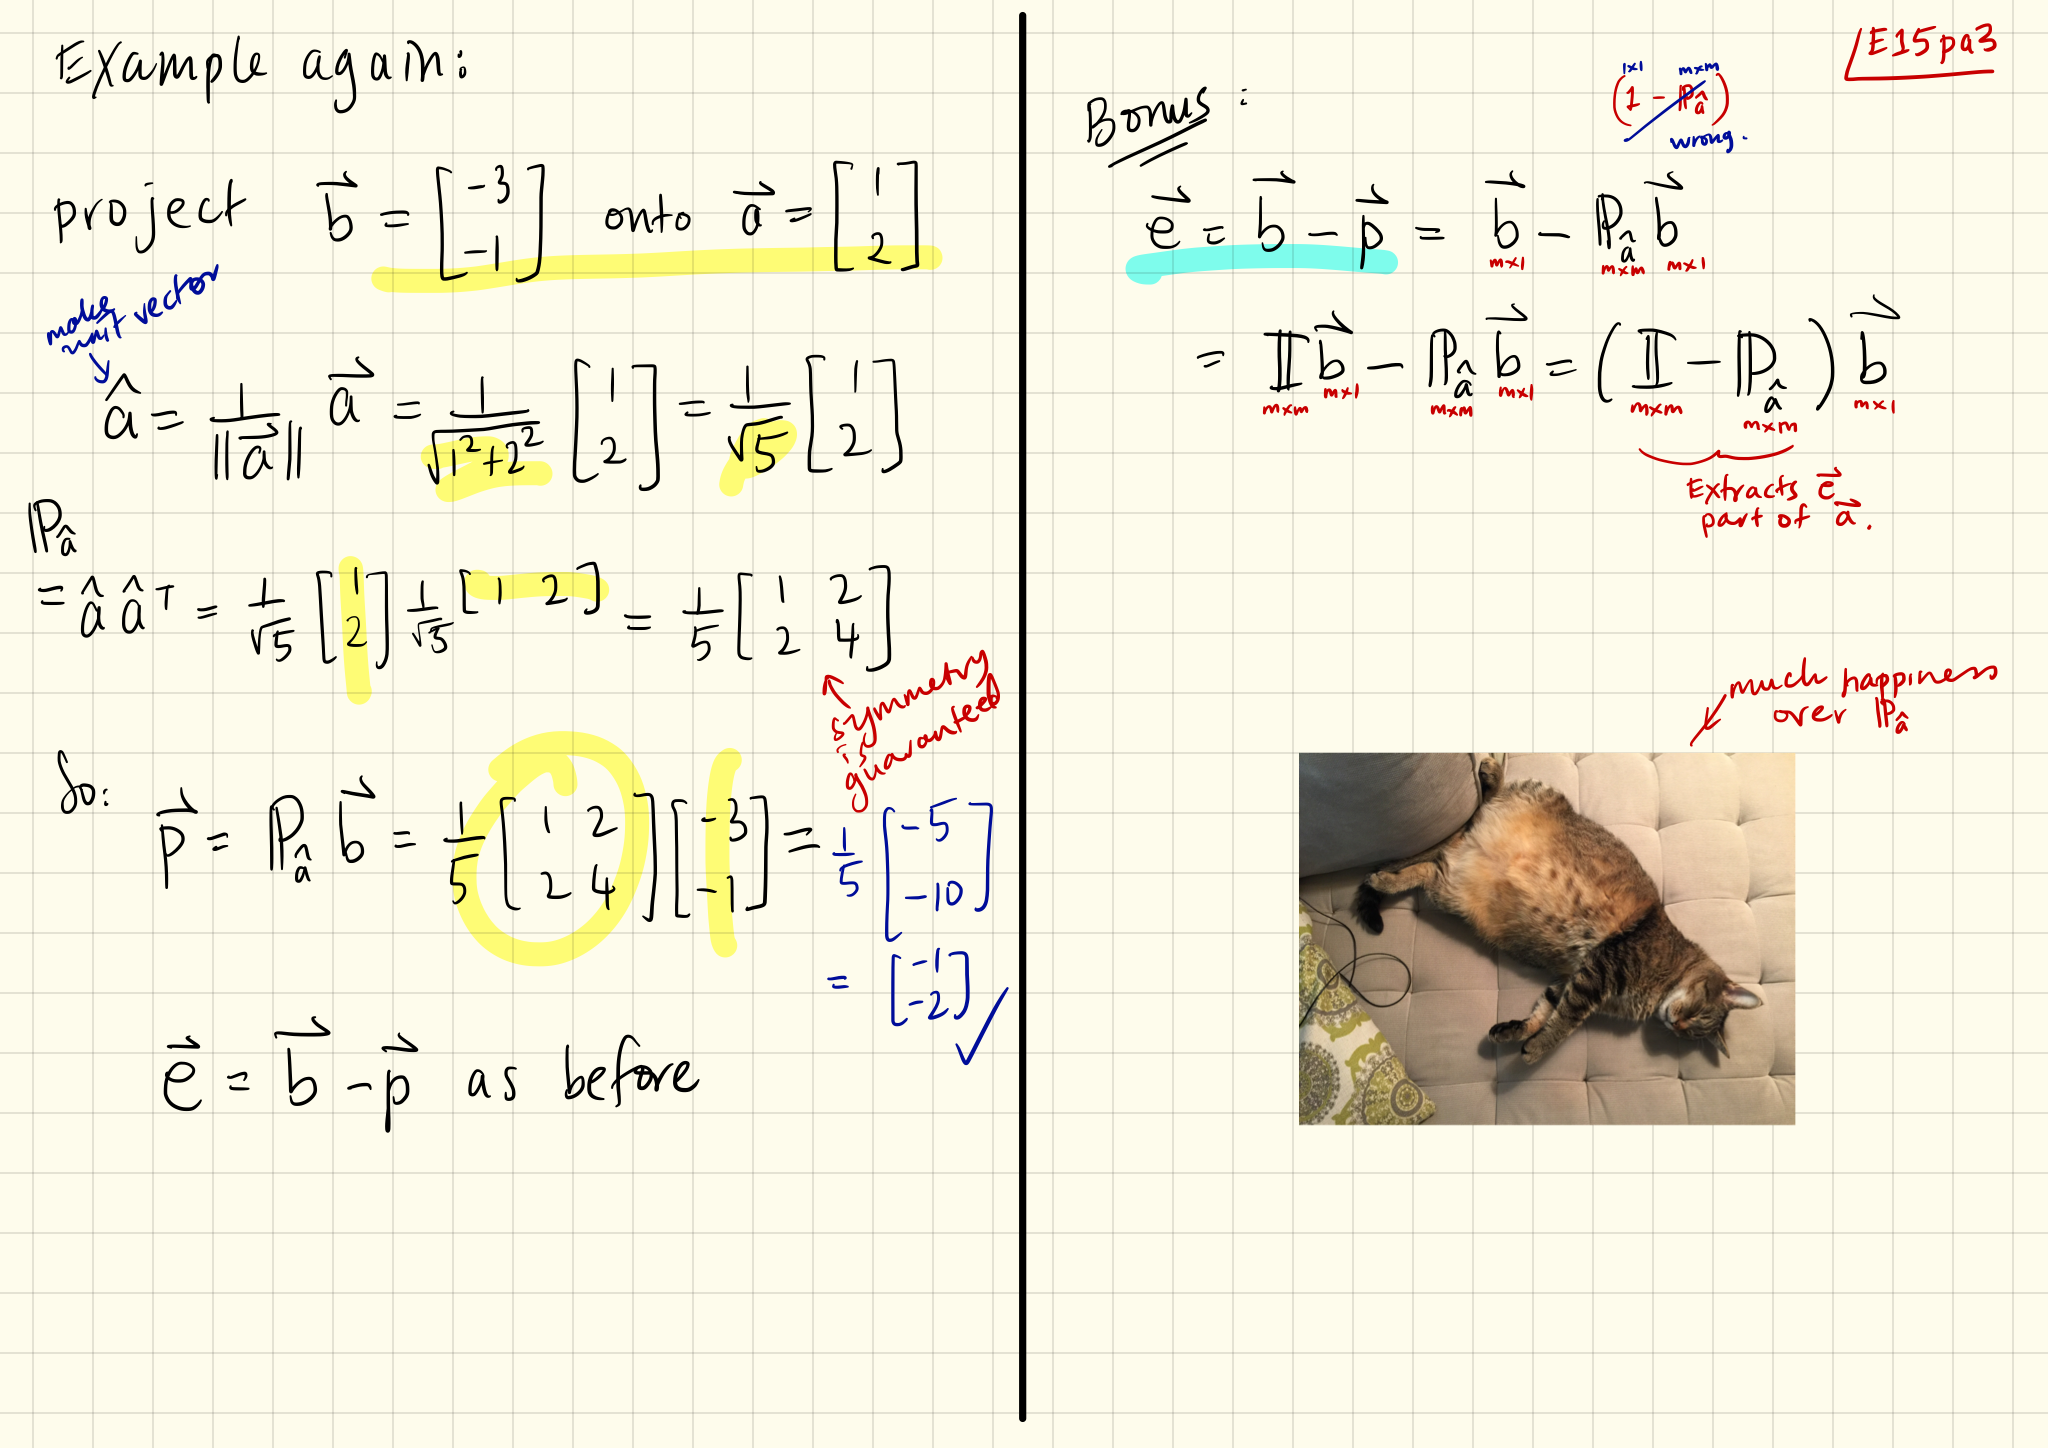 Example again:
project b⃗ = [-3 -1] onto a⃗ = [1 2]
make unit vector
â = 1/||a⃗|| a⃗ = 1/√(1²+2²) [1 2] = 1/√5 [1 2]
ℙ_â
= â â^T = 1/√5 [1 2] 1/√5 [1 2] = 1/5 [1 2 2 4]
symmetry
is
guaranteed
So:
p⃗ = ℙ_â b⃗ = 1/5 [1 2 2 4] [-3 -1] = 1/5 [-5 -10]
= [-1 -2] ✓
e⃗ = b⃗ - p⃗ as before
E15pa3
Bonus:
1×1 m×m
(1 - ℙ_â)
wrong.
e⃗ = b⃗ - p⃗ = b⃗ - ℙ_â b⃗
m×1 m×m m×1
= 𝕀 b⃗ - ℙ_â b⃗ = (𝕀 - ℙ_â) b⃗
m×m m×1 m×m m×1 m×m m×m m×1
Extracts e⃗
part of a⃗.
much happiness
over ℙ_â